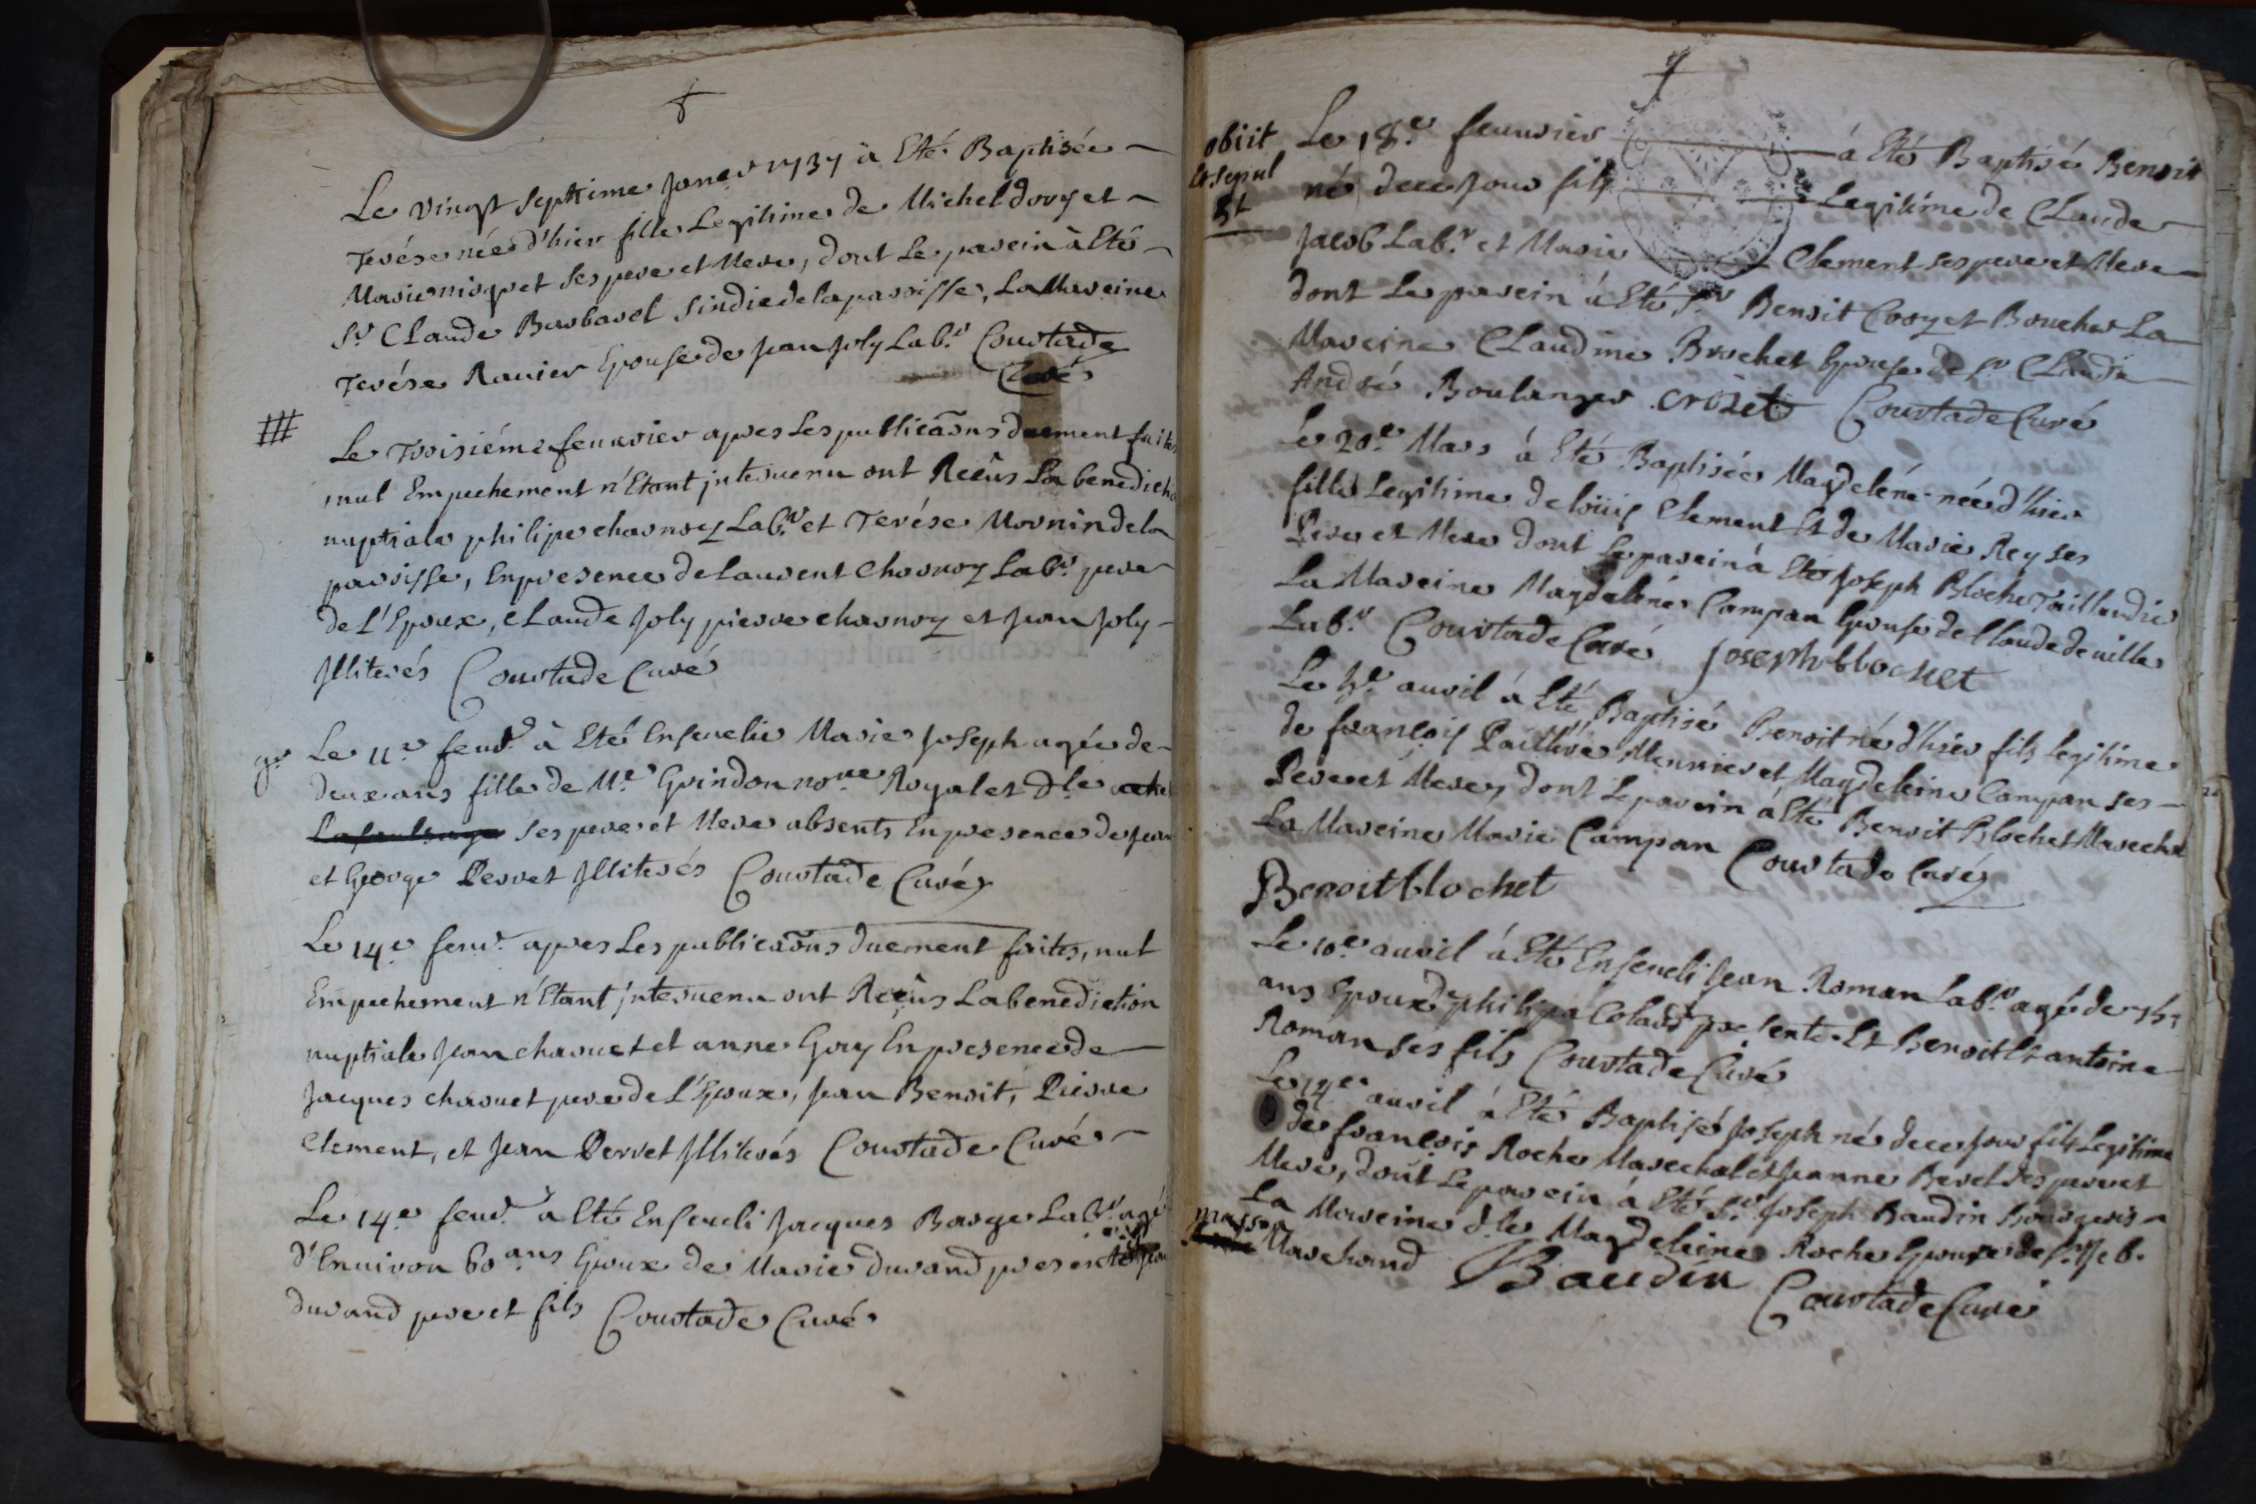 Le vingt septiéme janer 1737 à Eté Baptisée
Terése née d'hier fille Legitime de Michel dory et
Marie nisquet ses pere et Mere, dont Le parein à Eté
Sr. Claude Barbarel sindic de la paroisse, La Mareine
Terése Ravier Epouse de jean joly Labr. Courtade
Curé
Le Troisiéme feuvrier apres Les publicaõns duement faites
nul Empechement n'Etant intervenu ont Reçûs La benedicti
nuptiale philipe charnoy Labr. et Terése Mornin de la
paroisse, En presence de Laurent Charnoy Labr. pere
de L'Epoux, Claude joly pierre charnoy et jean joly
jllitérés Courtade Curé
Le 11e feuvr. à Eté Ensevelie Marie joseph agée de
deux ans fille de Me Guindon nore. Royal et dle
ses pere et Mere absents En presence de jean
et George Perret jllitérés Courtade Curé
Le 14e feuvr. apres Les publicaõns duement faites, nul
Empechement n'Etant intervenu ont Reçûs La benediction
nuptiale jean charvet et anne Gory En presence de
jacques charvet pere de L'Epoux, jean Benoit, Pierre
Clement, et jean Perret jllitérés Courtade Curé
Le 14e feuvr. à Eté Enseveli jacques Barge Labr. agé
d'Environ 60 ans Epoux de Marie durand presente
durand pere et fils Courtade Curé
obiit
et sepul
st
Le 18e feuvrier à Eté Baptisé Benoit
né de ce jour fils Legitime de Claude
jacob Labr. et Marie Clement ses pere et Mere
dont Le parein à Eté Sr. Benoit Croyet Boucher La
Mareine Claudine Brochet Epouse de Sr Claude
André Boulanger crozet Courtade Curé
Le 20e Mars à Eté Baptisée Magdeléne née d'hier
fille Legitime de loüis Clement Et de Marie Rey ses
Pere et Mere dont Le parein à Eté joseph Blochet Taillandier
La Mareine Magdeléne Campan Epouse de Claude deville
Labr. Courtade Curé joseph blochet
Le avril à Eté Baptisé Benoit né d'hier fils legitime
de françois Paillére Meunier et Magdeleine Campan ses
Pere et Mere, dont Le parein à Eté Benoit Blochet Marechal
La Mareine Marie Campan Courtade Curé
Benoit blochet
Le 10e avril à Eté Enseveli jean Roman Labr. agé de
ans Epoux de philipa Colaud presente Et Benoit Et antoine
Roman ses fils Courtade Curé
Le 14e avril à Eté Baptisé joseph né de ce jour fils Legitime
de françois Roche Marechal et jeanne Revel ses pere et
Mere, dont Le parein à Eté Sr. joseph Baudin Bourgeois
La Mareine dle Magdeleine Roche Epouse de Sr.
Marchand Baudin Courtade Curé